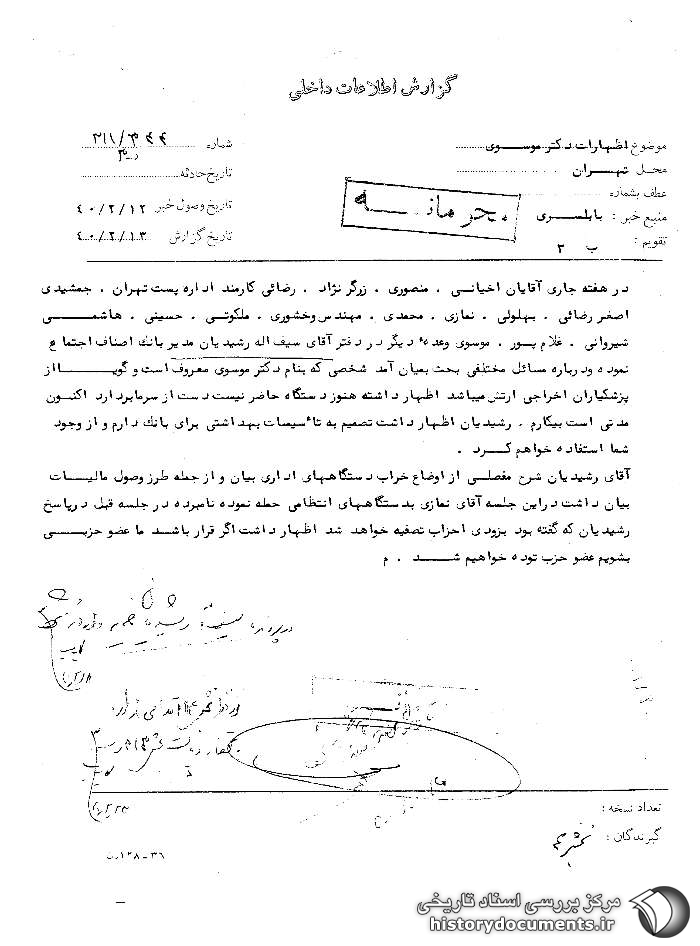 گزارش اطلاعات داخلی
موضوع اظهارات دکتر موسوی
شماره ۳۱۱/۳۴۴
محل تهران
تاریخ حادثه
عطف بشماره
محرمانه
منبع خبر : بابلسری
تاریخ وصول خبر ۴۰/۲/۱۲
تقویم : ب ۳
تاریخ گزارش ۴۰/۲/۱۳
در هفته جاری آقایان اخیانی . منصوری . زرگر نژاد . رضائی کارمند اداره پست تهران . جمشیدی
اصغر رضائی . بهلولی . نمازی . محمدی . مهندس وخشوری . ملکوتی . حسینی . هاشمی
شیروانی . غلام پور . موسوی وعده ٔ دیگر در دفتر آقای سیف اله رشیدیان مدیر بانک اصناف اجتماع
نموده و درباره مسائل مختلفی بحث بمیان آمد شخصی که بنام دکتر موسوی معروف است و گویا از
پزشکیاران اخراجی ارتش میباشد اظهار داشته هنوز دستگاه حاضر نیست دست از سرمابردارد اکنون
مدتی است بیکارم . رشیدیان اظهار داشت تصمیم به تاٴسیسات بهداشتی برای بانک دارم و از وجود
شما استفاده خواهم کرد .
آقای رشیدیان شرح مفصلی از اوضاع خراب دستگاههای اداری بیان و از جمله طرز وصول مالیات
بیان داشت در این جلسه آقای نمازی بدستگاههای انتظامی حمله نموده نامبرده در جلسه قبل در پاسخ
رشیدیان که گفته بود بزودی احزاب تصفیه خواهد شد اظهار داشت اگر قرار باشد ما عضو حزبی
بشویم عضو حزب توده خواهیم شد . م
تعداد نسخه :
گیرندگان :
۳۶-۱۲۸
مرکز بررسی اسناد تاریخی
historydocuments.ir